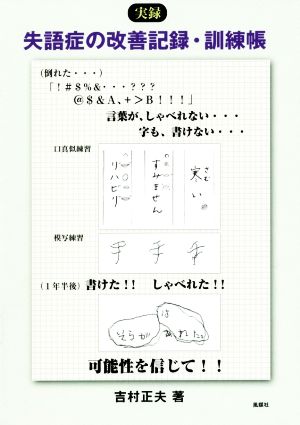 実録
失語症の改善記録・訓練帳
(倒れた・・・)
「!#$%&・・・???
@$&A、+>B!!!」
言葉が、しゃべれない・・・
字も、書けない・・・
口真似練習
リハビリ
すみません
さむ
寒い
模写練習
手 手 手
(1年半後)書けた!! しゃべれた!!
そらが
はれた。
可能性を信じて!!
吉村正夫 著
風媒社